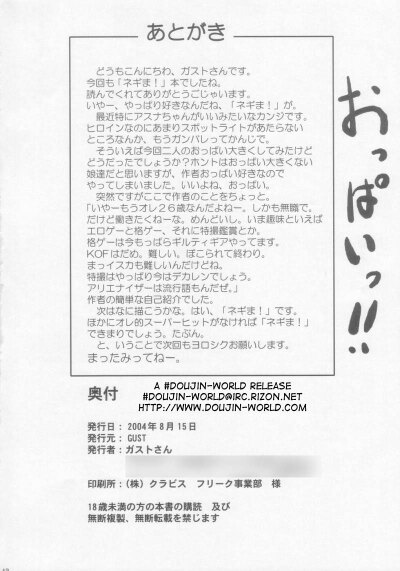 あとがき
どうもこんにちわ、ガストさんです。
今回も「ネギま！」本でしたね。
読んでくれてありがとうごじゃいます。
いやー、やっぱり好きなんだね、「ネギま！」が。
最近特にアスナちゃんがいいみたいなカンジです。
ヒロインなのにあまりスポットライトがあたらない
ところなんか、もうガンバレってかんじで。
そういえば今回二人のおっぱい大きくしてみたけど
どうだったでしょうか？ホントはおっぱい大きくない
娘達だと思いますが、作者おっぱい好きなので
やってしまいました。いいよね、おっぱい。
突然ですがここで作者のことをちょっと。
「いやーもうオレ２６歳なんだよねー。しかも無職で。
だけど働きたくねーな。めんどいし。いま趣味といえば
エロゲーと格ゲー、それに特撮鑑賞とか。
格ゲーは今もっぱらギルティギアやってます。
KOFはだめ。難しい。ぼこられて終わり。
まっイスカも難しいんだけどね。
特撮はやっぱり今はデカレンでしょう。
アリエナイザーは流行語もんだぜ。」
作者の簡単な自己紹介でした。
次はなに描こうかな。はい、「ネギま！」です。
ほかにオレ的スーパーヒットがなければ「ネギま！」
できまりでしょう。たぶん。
と、いうことで次回もヨロシクお願いします。
まったみってねー。
おっぱいっ!!
奥付
A #DOUJIN-WORLD RELEASE
#DOUJIN-WORLD@IRC.RIZON.NET
HTTP://WWW.DOUJIN-WORLD.COM/
発行日：2004年8月15日
発行元：GUST
発行者：ガストさん
印刷所：（株）クラビス　フリーク事業部　様
18歳未満の方の本書の購読　及び
無断複製、無断転載を禁じます